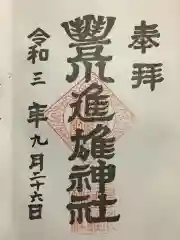 奉拝
豐川進雄神社
令和三年九月二十六日